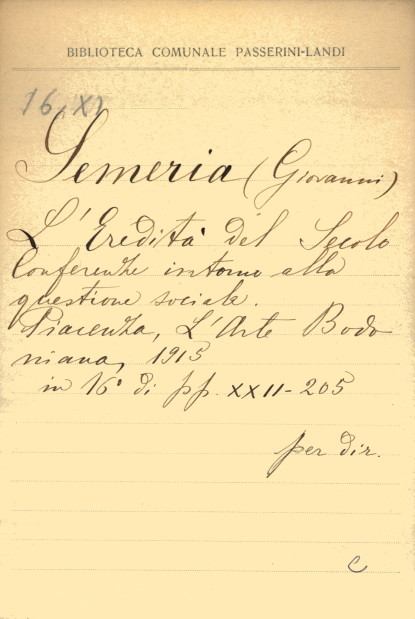 BIBLIOTECA COMUNALE PASSERINI-LANDI
16 XI
Semeria (Giovanni)
L'Eredità del Secolo
Conferenze intorno alla
questione sociale.
Piacenza, L'Arte Bodo
niana, 1915
in 16° di pp. XXII-205
per dir.
C